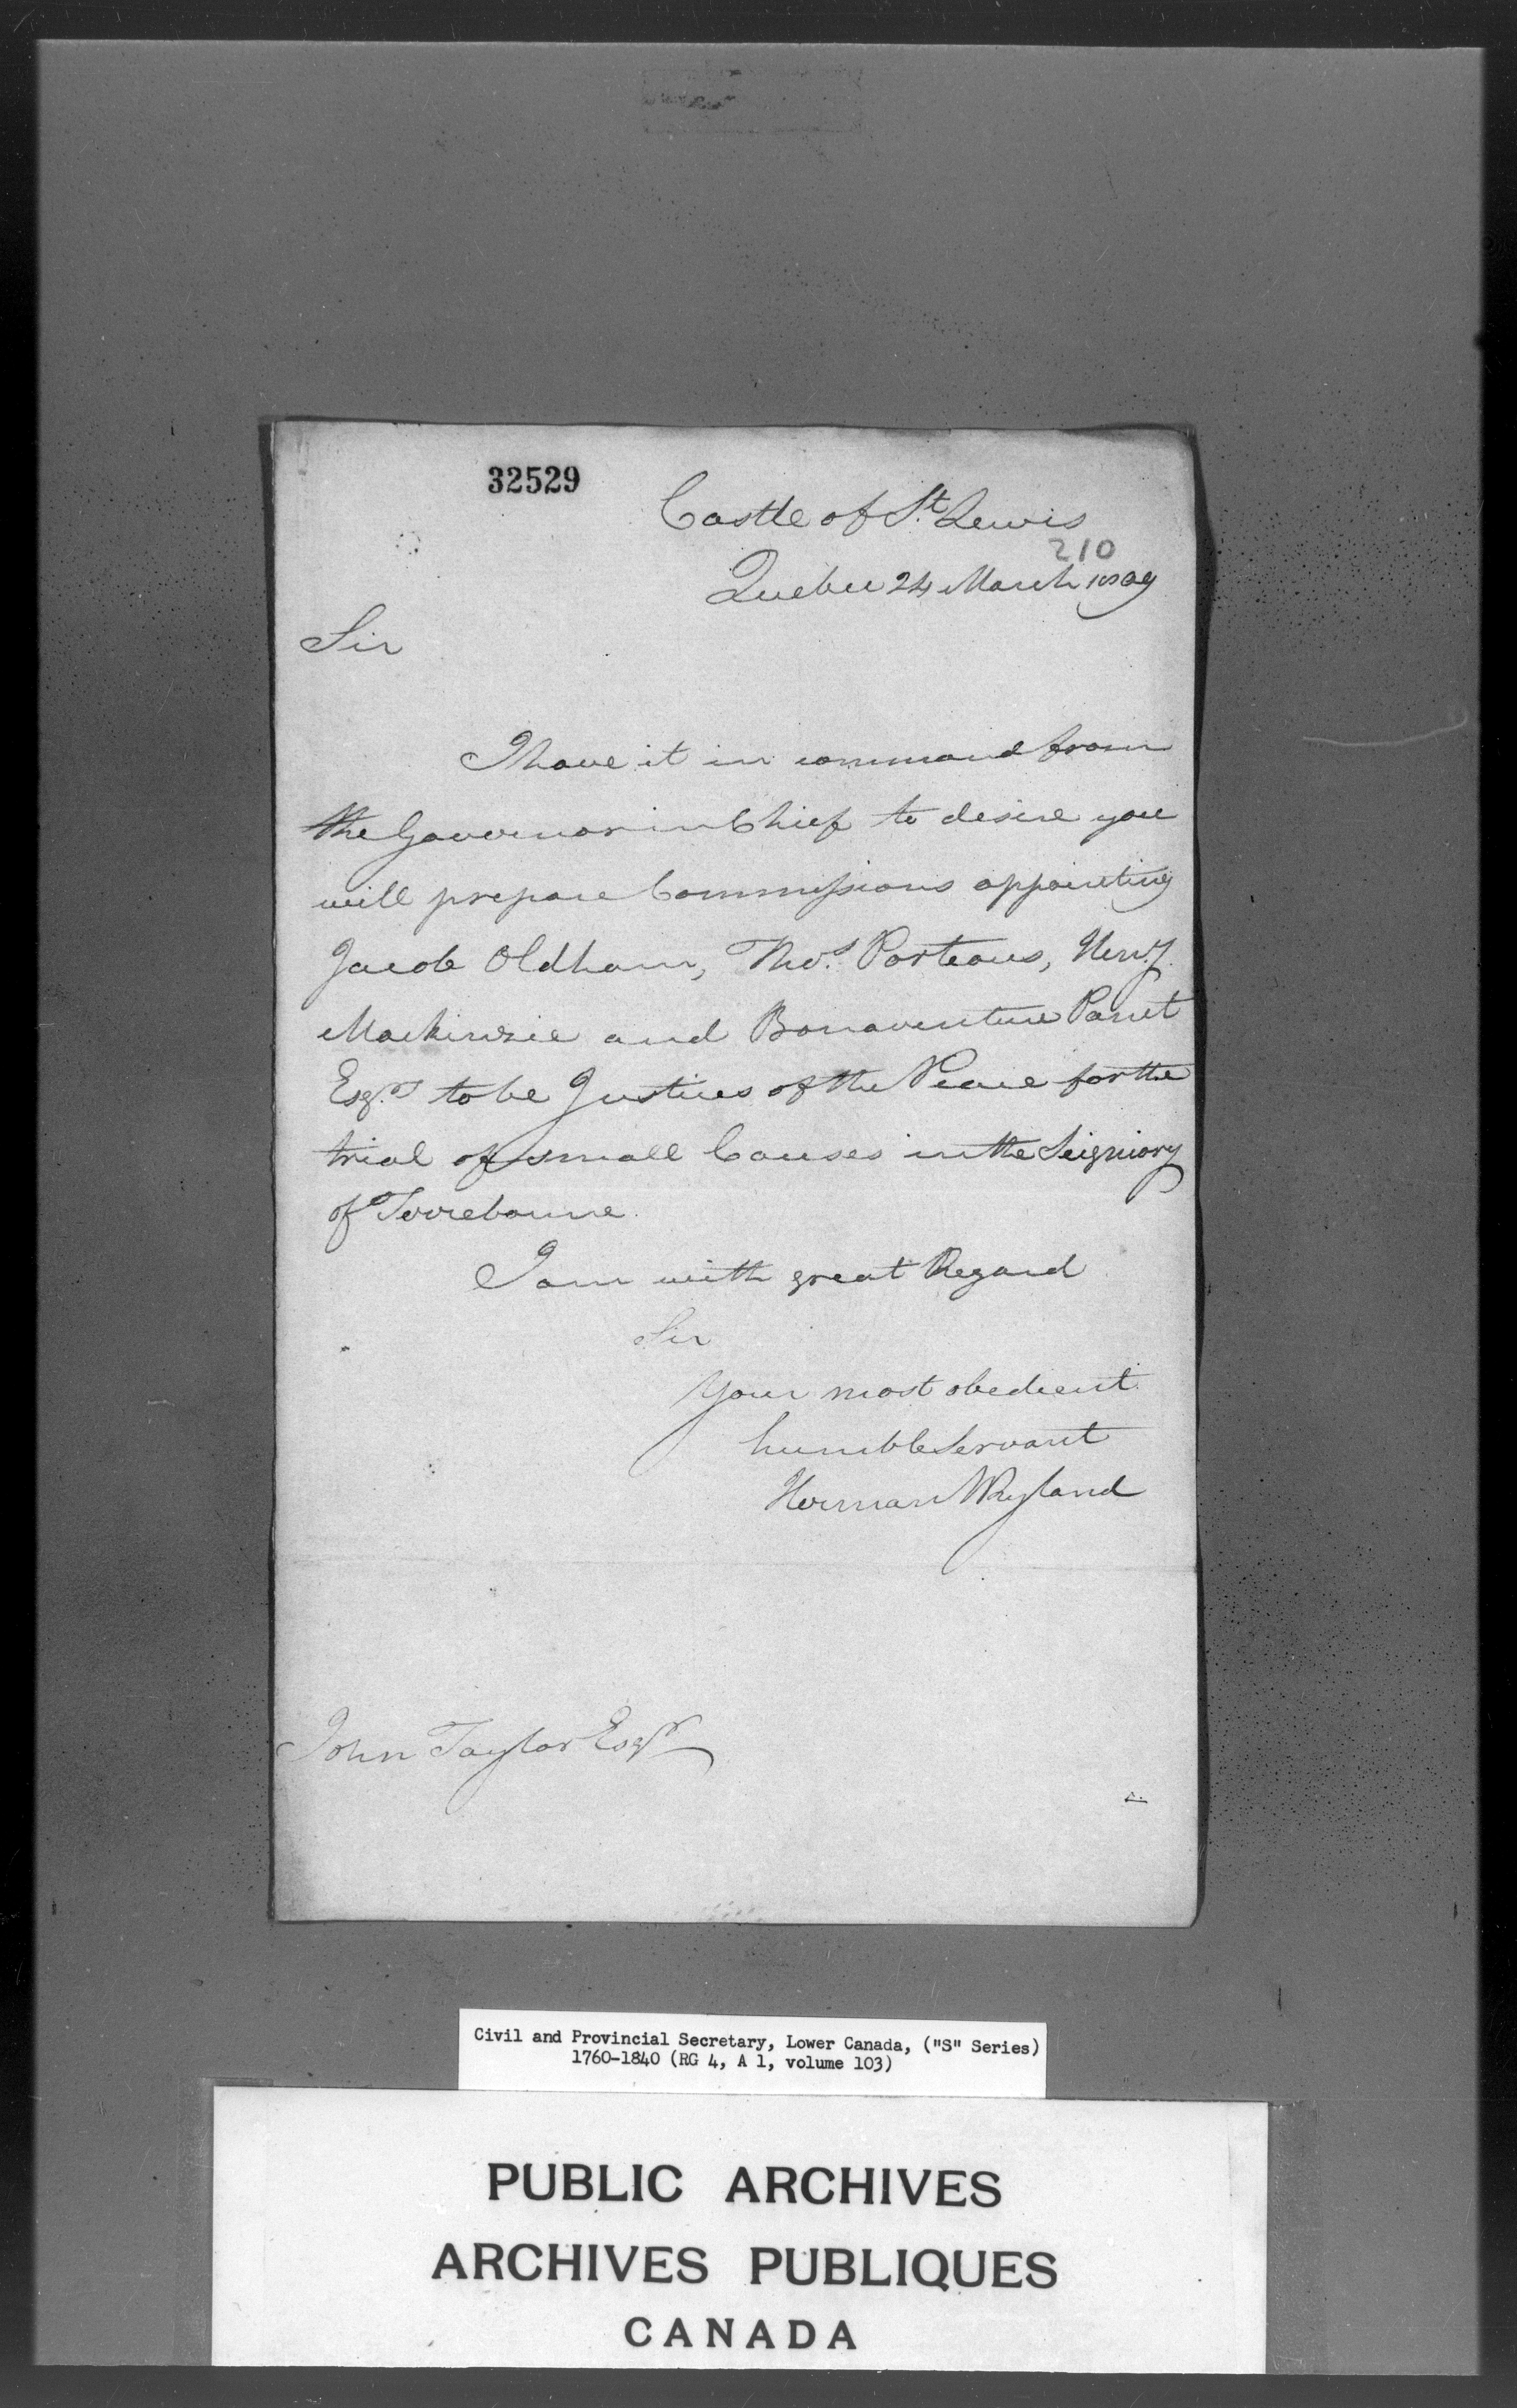 32529
Castle of St. Lewis
210
Quebec 24 March 1809
Sir
I have it in command from
the Governor in Chief to desire you
will prepare Commissions appointing
Jacob Oldham, Thos. Porteous, Henry
Mackinzie and Bonaventure Panet
Esqrs to be Justices of the Peace for the
trial of small Causes in the Seigniory
of Terrebonne.
I am with great Regard
Sir
Your most obedient
humble Servant
Herman W Ryland
John Taylor Esqr
Civil and Provincial Secretary, Lower Canada, ("S" Series)
1760-1840 (RG 4, A 1, volume 103)
PUBLIC ARCHIVES
ARCHIVES PUBLIQUES
CANADA